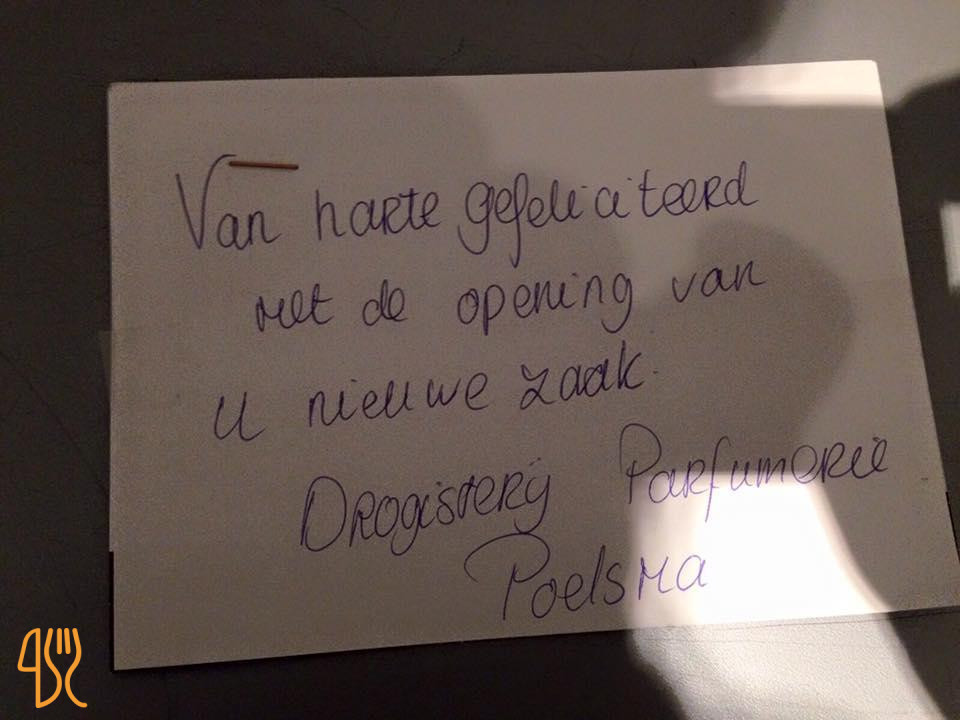 Van harte gefeliciteerd
met de opening van
u nieuwe zaak.
Drogisterij Parfumerie
Poelsma